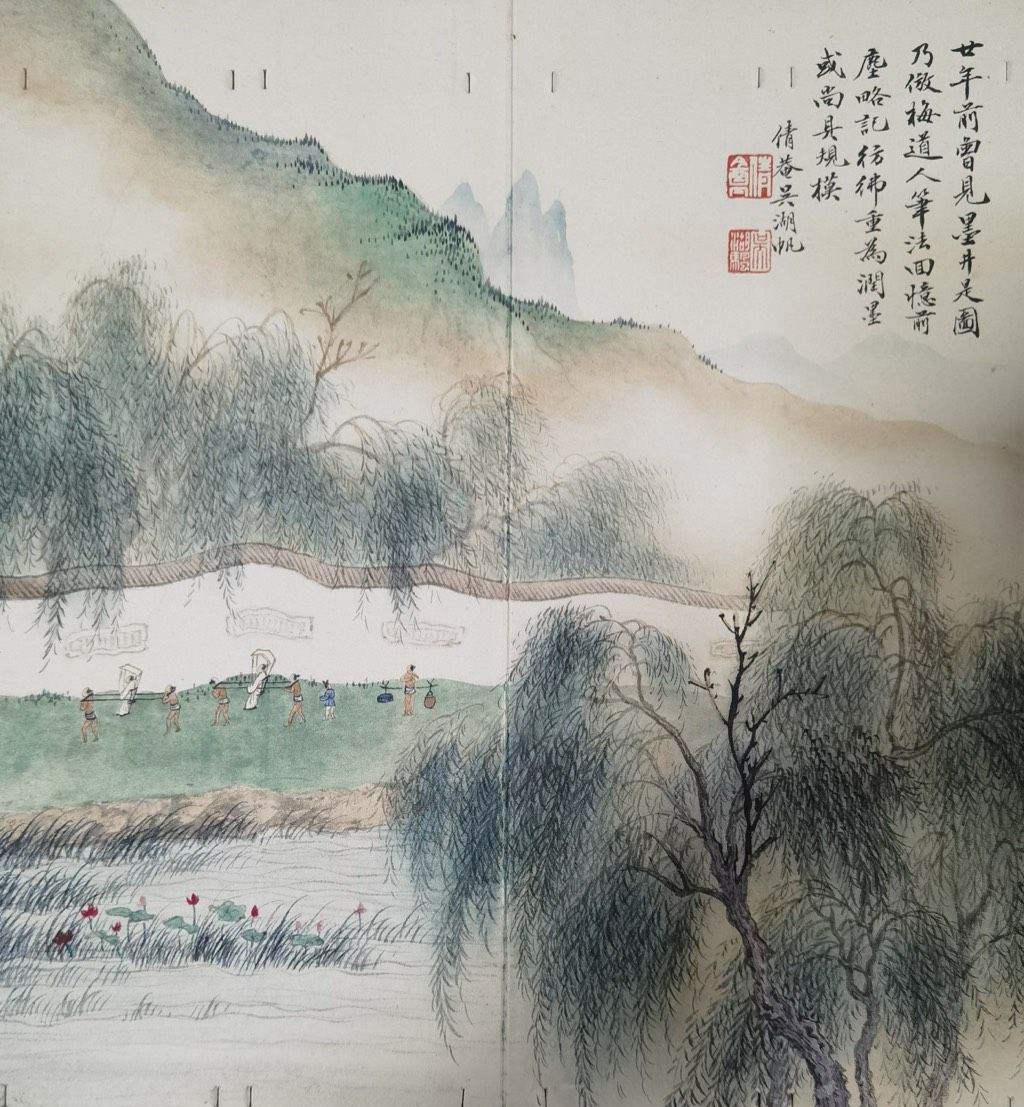 廿年前曾見墨井是圖
乃倣梅道人筆法回憶前
塵略記彷彿重為潤墨
或尚具規模
倩菴吳湖帆
倩菴
吳湖驏